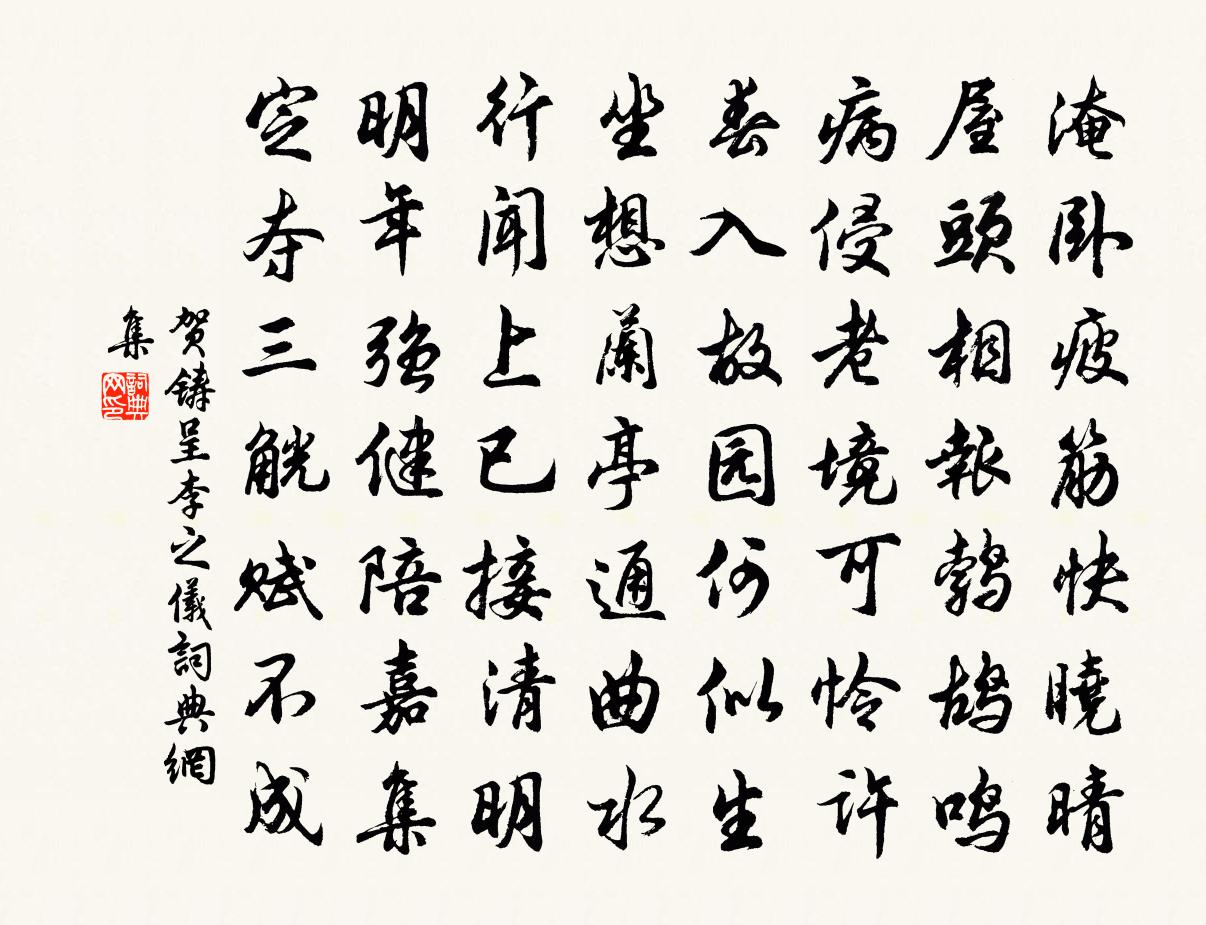 淹卧疲筋快曉晴
屋頭相報鹁鸪鸣
病侵老境可怜许
春入故园何似生
坐想蘭亭通曲水
行闻上巳接清明
明年强健陪嘉集
定夺三觥赋不成
贺鑄呈李之儀詞典網
集
詞典
网印